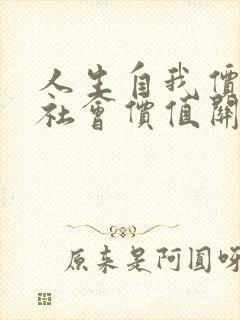 人生自我價
社會價值關
原来是阿圓呀